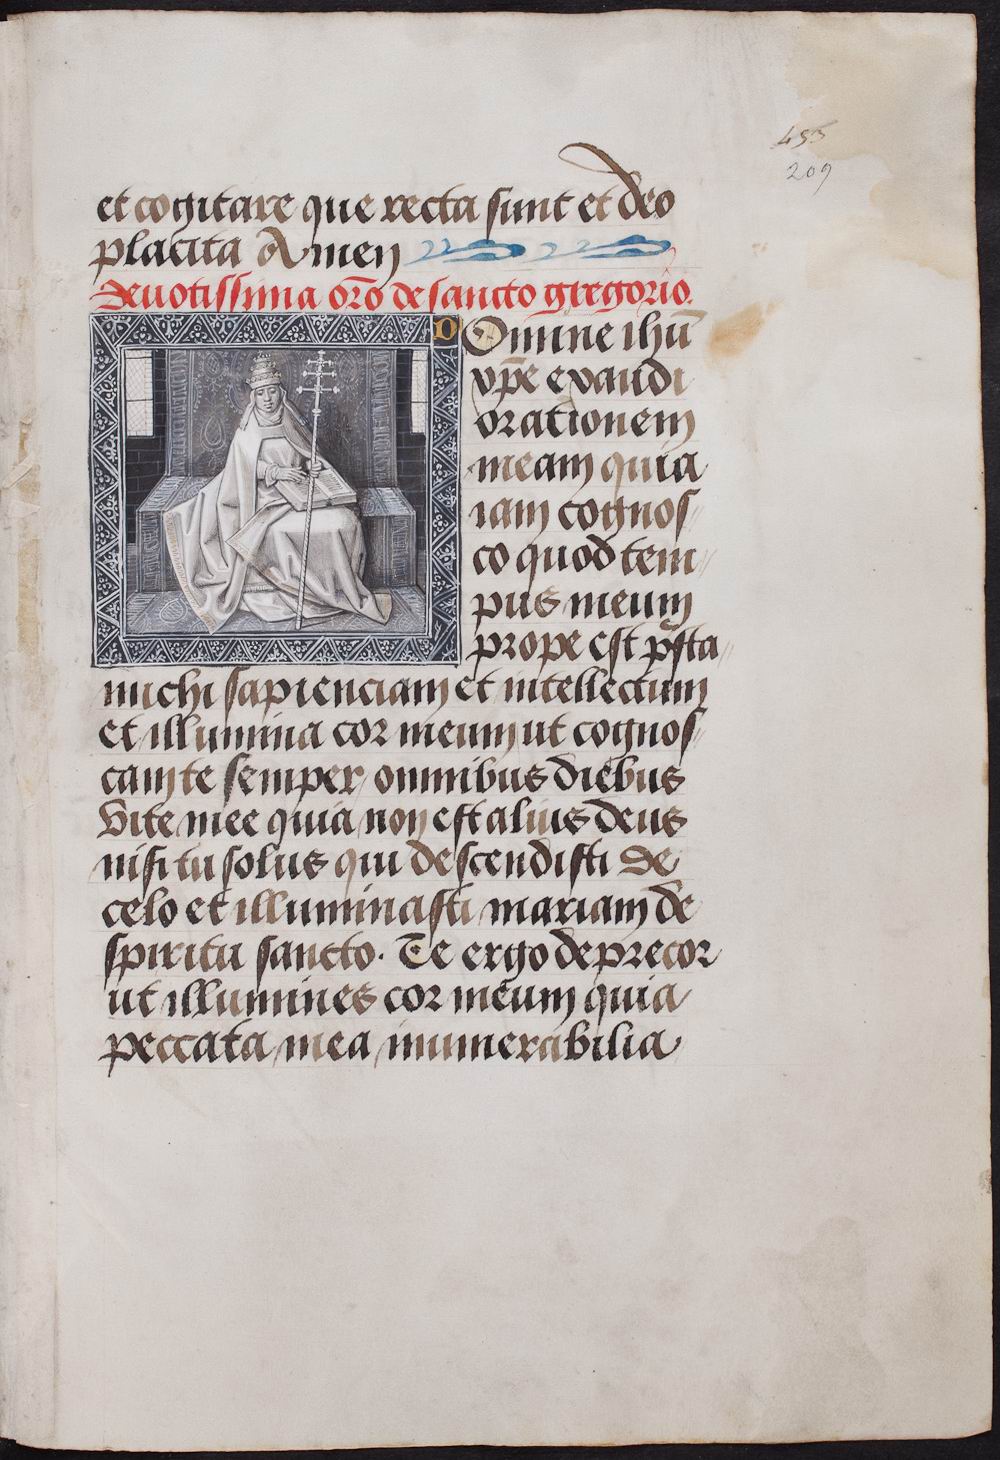 455
209
et cogitare que recta sunt et deo
placita Amen
Deuotissima orõ de sancto gregorio.
DOmine ihũ
xp̃e exaudi
orationem
meam quia
iam cognos
co quod tem
pus meum
prope est p̃sta
michi sapienciam et intellectum
et illumina cor meum ut cognos
cam te semper omnibus diebus
vite mee quia non est alius deus
nisi tu solus qui descendisti de
celo et illuminasti mariam de
spiritu sancto. Te ergo deprecor
ut illumines cor meum quia
peccata mea inumerabilia